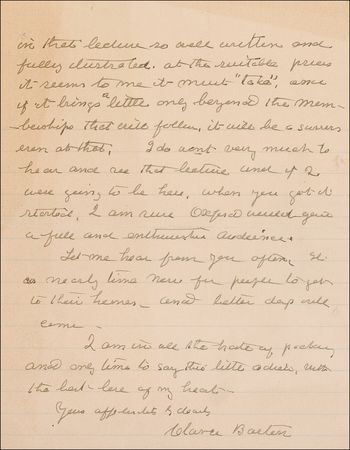 in that lecture so well written and
fully illustrated, at the suitable prices
it seems to me it must "take", and
if it brings a little only beyond the mem-
berships that will follow, it will be a success
even at that. I do want very much to
hear and see that lecture and if I
were going to be here, when you got it
started, I am sure Oxford would give
a full and enthusiastic audience.
Let me hear from you often. It
is nearly time now for people to get
to their homes, and better days will
come -
I am in all the haste of packing
and only time to say this little adieu, with
the best love of my heart -
Yours affectionately & dearly
Clara Barton